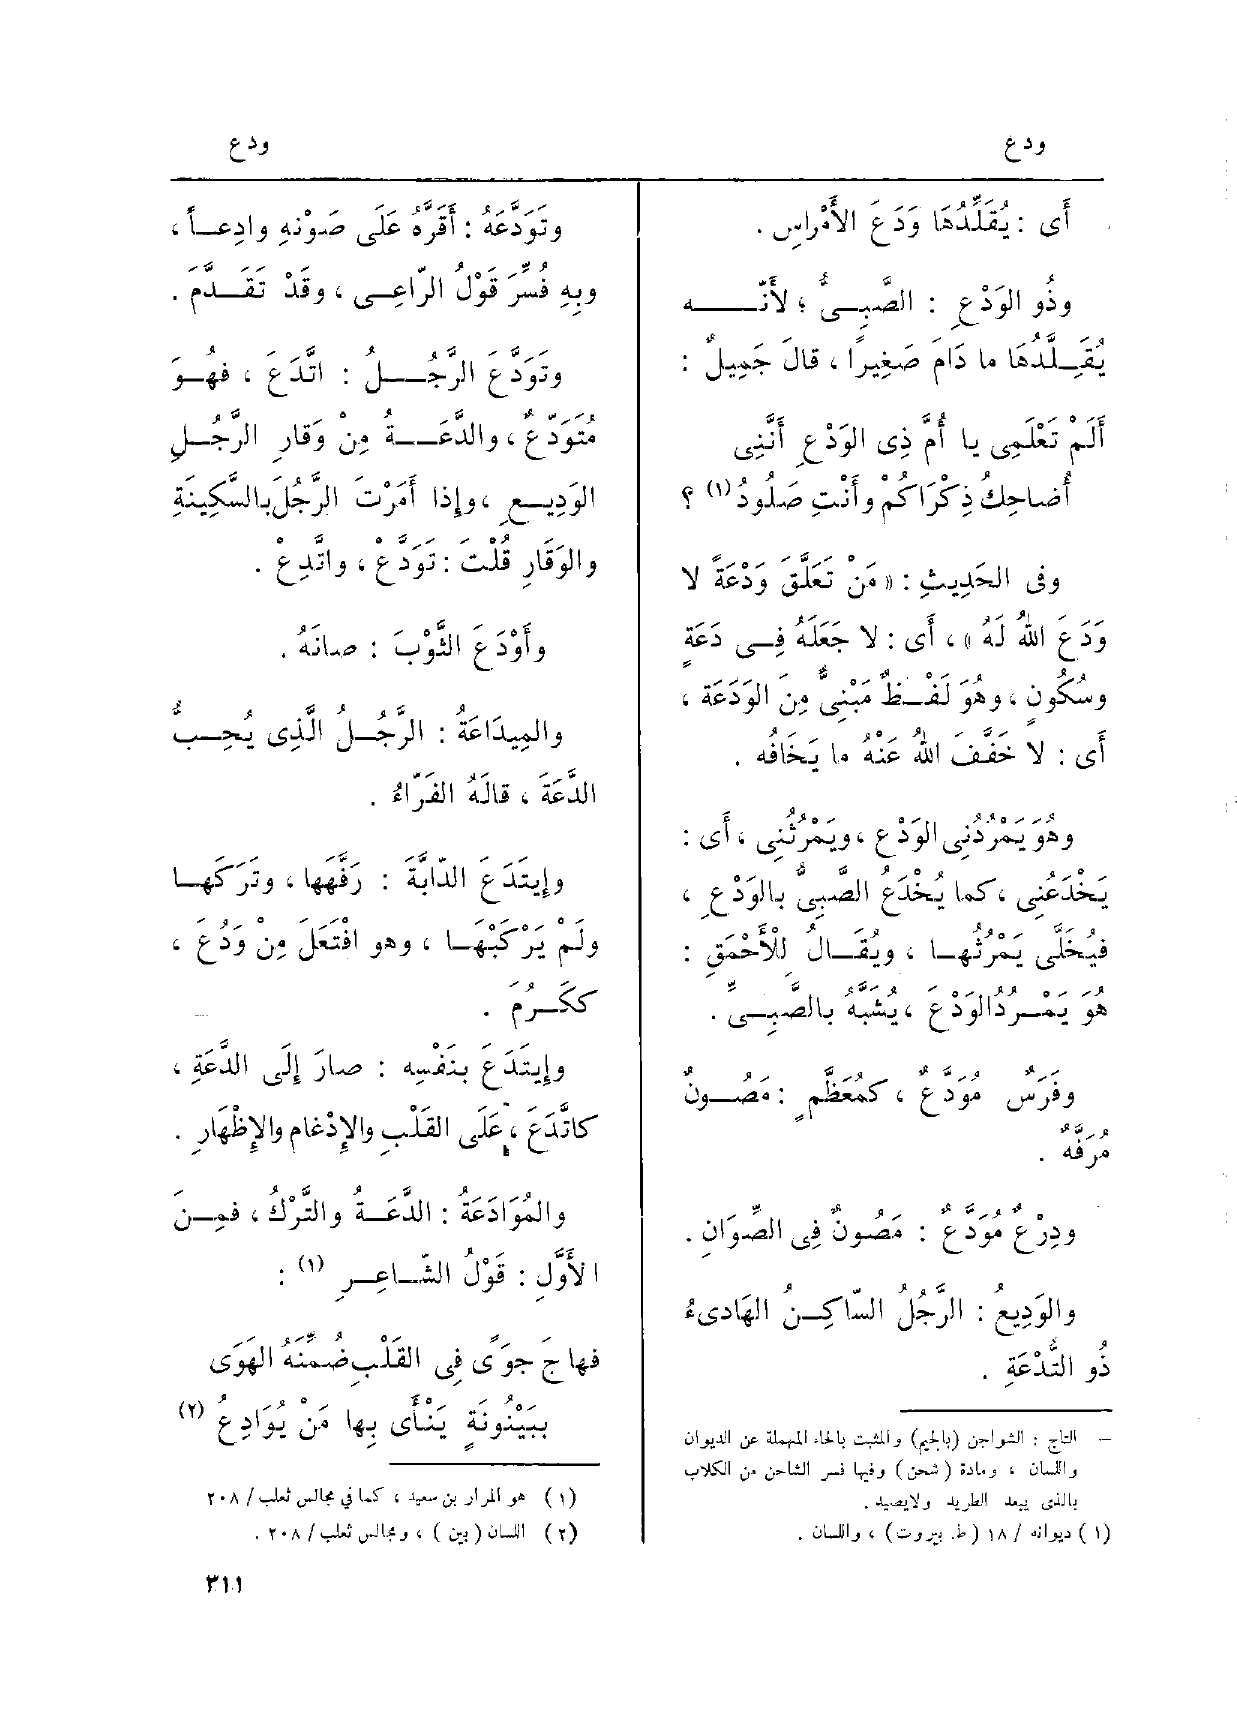 ودع
ودع
أى : يُقَلِّدُهَا وَدَعَ الأَمْراسِ .
وذُو الوَدْعِ : الصَّبِىُّ ؛ لأَنَّه
يُقَلَّدُهَا ما دَامَ صَغِيرًا ، قالَ جَمِيلٌ :
أَلَمْ تَعْلَمِى يا أُمَّ ذِى الوَدْعِ أَنَّنِى
أُضاحِكُ ذِكْرَاكُمْ وأَنْتِ صَلُودُ (١) ؟
وفى الحَدِيثِ : « مَنْ تَعَلَّقَ وَدْعَةً لا
وَدَعَ اللهُ لَهُ » ، أى : لا جَعَلَهُ فِى دَعَةٍ
وسُكُونٍ ، وهُوَ لَفْظٌ مَبْنِىٌّ مِنَ الوَدَعَة ،
أَى : لا خَفَّفَ اللهُ عَنْهُ ما يَخَافُه .
وهُوَ يَمْرُدُنِى الوَدْع ، ويَمْرُثُنِى ، أَى :
يَخْدَعُنِى ، كما يُخْدَعُ الصَّبِىُّ بالوَدْعِ ،
فيُخَلَّى يَمْرُثُهَا ، ويُقَالُ لِلأَحْمَقِ :
هُوَ يَمْرُدُ الوَدْعَ ، يُشَبَّهُ بالصَّبِىِّ .
وفَرَسٌ مُوَدَّعٌ ، كمُعَظَّمٍ : مَصُونٌ
مُرَفَّهٌ .
ودِرْعٌ مُوَدَّعٌ : مَصُونٌ فِى الصِّوَانِ .
والوَدِيعُ : الرَّجُلُ السّاكِنُ الهَادِىءُ
ذُو التُّدْعَةِ .
— التاج : الشواجن (بالجيم) والمثبت بالحاء المهملة عن الديوان
واللسان ، ومادة (شحن) وفيها فسر الشاحن من الكلاب
بالذى يبعد الطريد ولايصيد .
(١) ديوانه / ١٨ (ط. بيروت) ، واللسان .
وتَوَدَّعَهُ : أَقَرَّهُ عَلَى صَوْنِهِ وادِعاً ،
وبِهِ فُسِّرَ قَوْلُ الرّاعِى ، وقَدْ تَقَدَّمَ .
وتَوَدَّعَ الرَّجُلُ : اتَّدَعَ ، فهُوَ
مُتَوَدِّعٌ ، والدَّعَةُ مِنْ وَقارِ الرَّجُلِ
الوَدِيعِ ، وإذا أَمَرْتَ الرَّجُلَ بالسَّكِينَةِ
والوَقَارِ قُلْتَ : تَوَدَّعْ ، واتَّدِعْ .
وأَوْدَعَ الثَّوْبَ : صانَهُ .
والمِيدَاعَةُ : الرَّجُلُ الَّذِى يُحِبُّ
الدَّعَةَ ، قالَهُ الفَرّاءُ .
وإيتَدَعَ الدّابَّةَ : رَفَّهَها ، وتَرَكَها
ولَمْ يَرْكَبْهَا ، وهو افْتَعَلَ مِنْ وَدُعَ ،
ككَرُمَ .
وإيتَدَعَ بنَفْسِه : صارَ إِلَى الدَّعَةِ ،
كاتَّدَعَ ، عَلَى القَلْبِ والإدْغام والإِظْهَارِ .
والمُوَادَعَةُ : الدَّعَةُ والتَّرْكُ ، فمِنَ
الأَوَّلِ : قَوْلُ الشّاعِرِ (١) :
فهاجَ جَوًى فِى القَلْبِ ضُمِّنَهُ الهَوَى
بِبَيْنُونَةٍ يَنْأَى بِها مَنْ يُوَادِعُ (٢)
(١) هو المرار بن سعيد ، كما فى مجالس ثعلب / ٢٠٨
(٢) اللسان (بين ) ، ومجالس ثعلب / ٢٠٨ .
٣١١